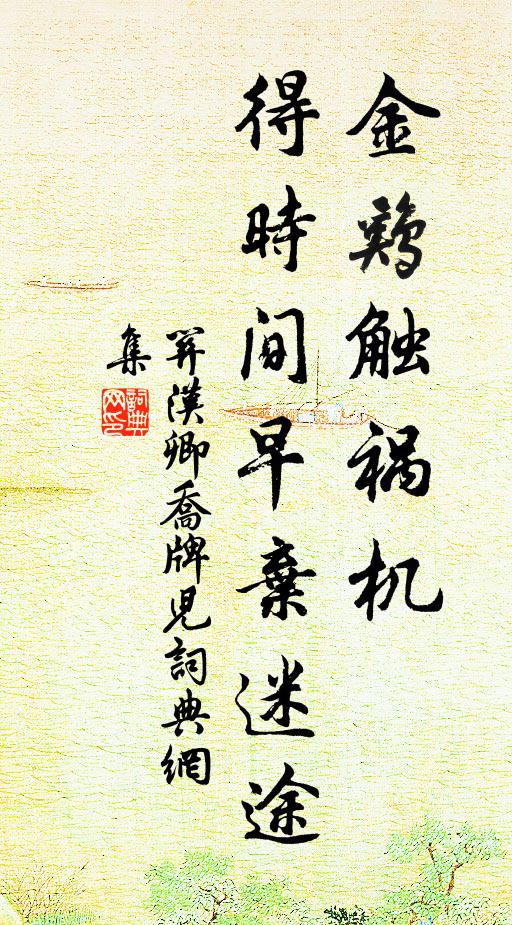 金鷄触祸机
得時间早棄迷途
关漢卿喬牌児詞典網
集
詞典
网印